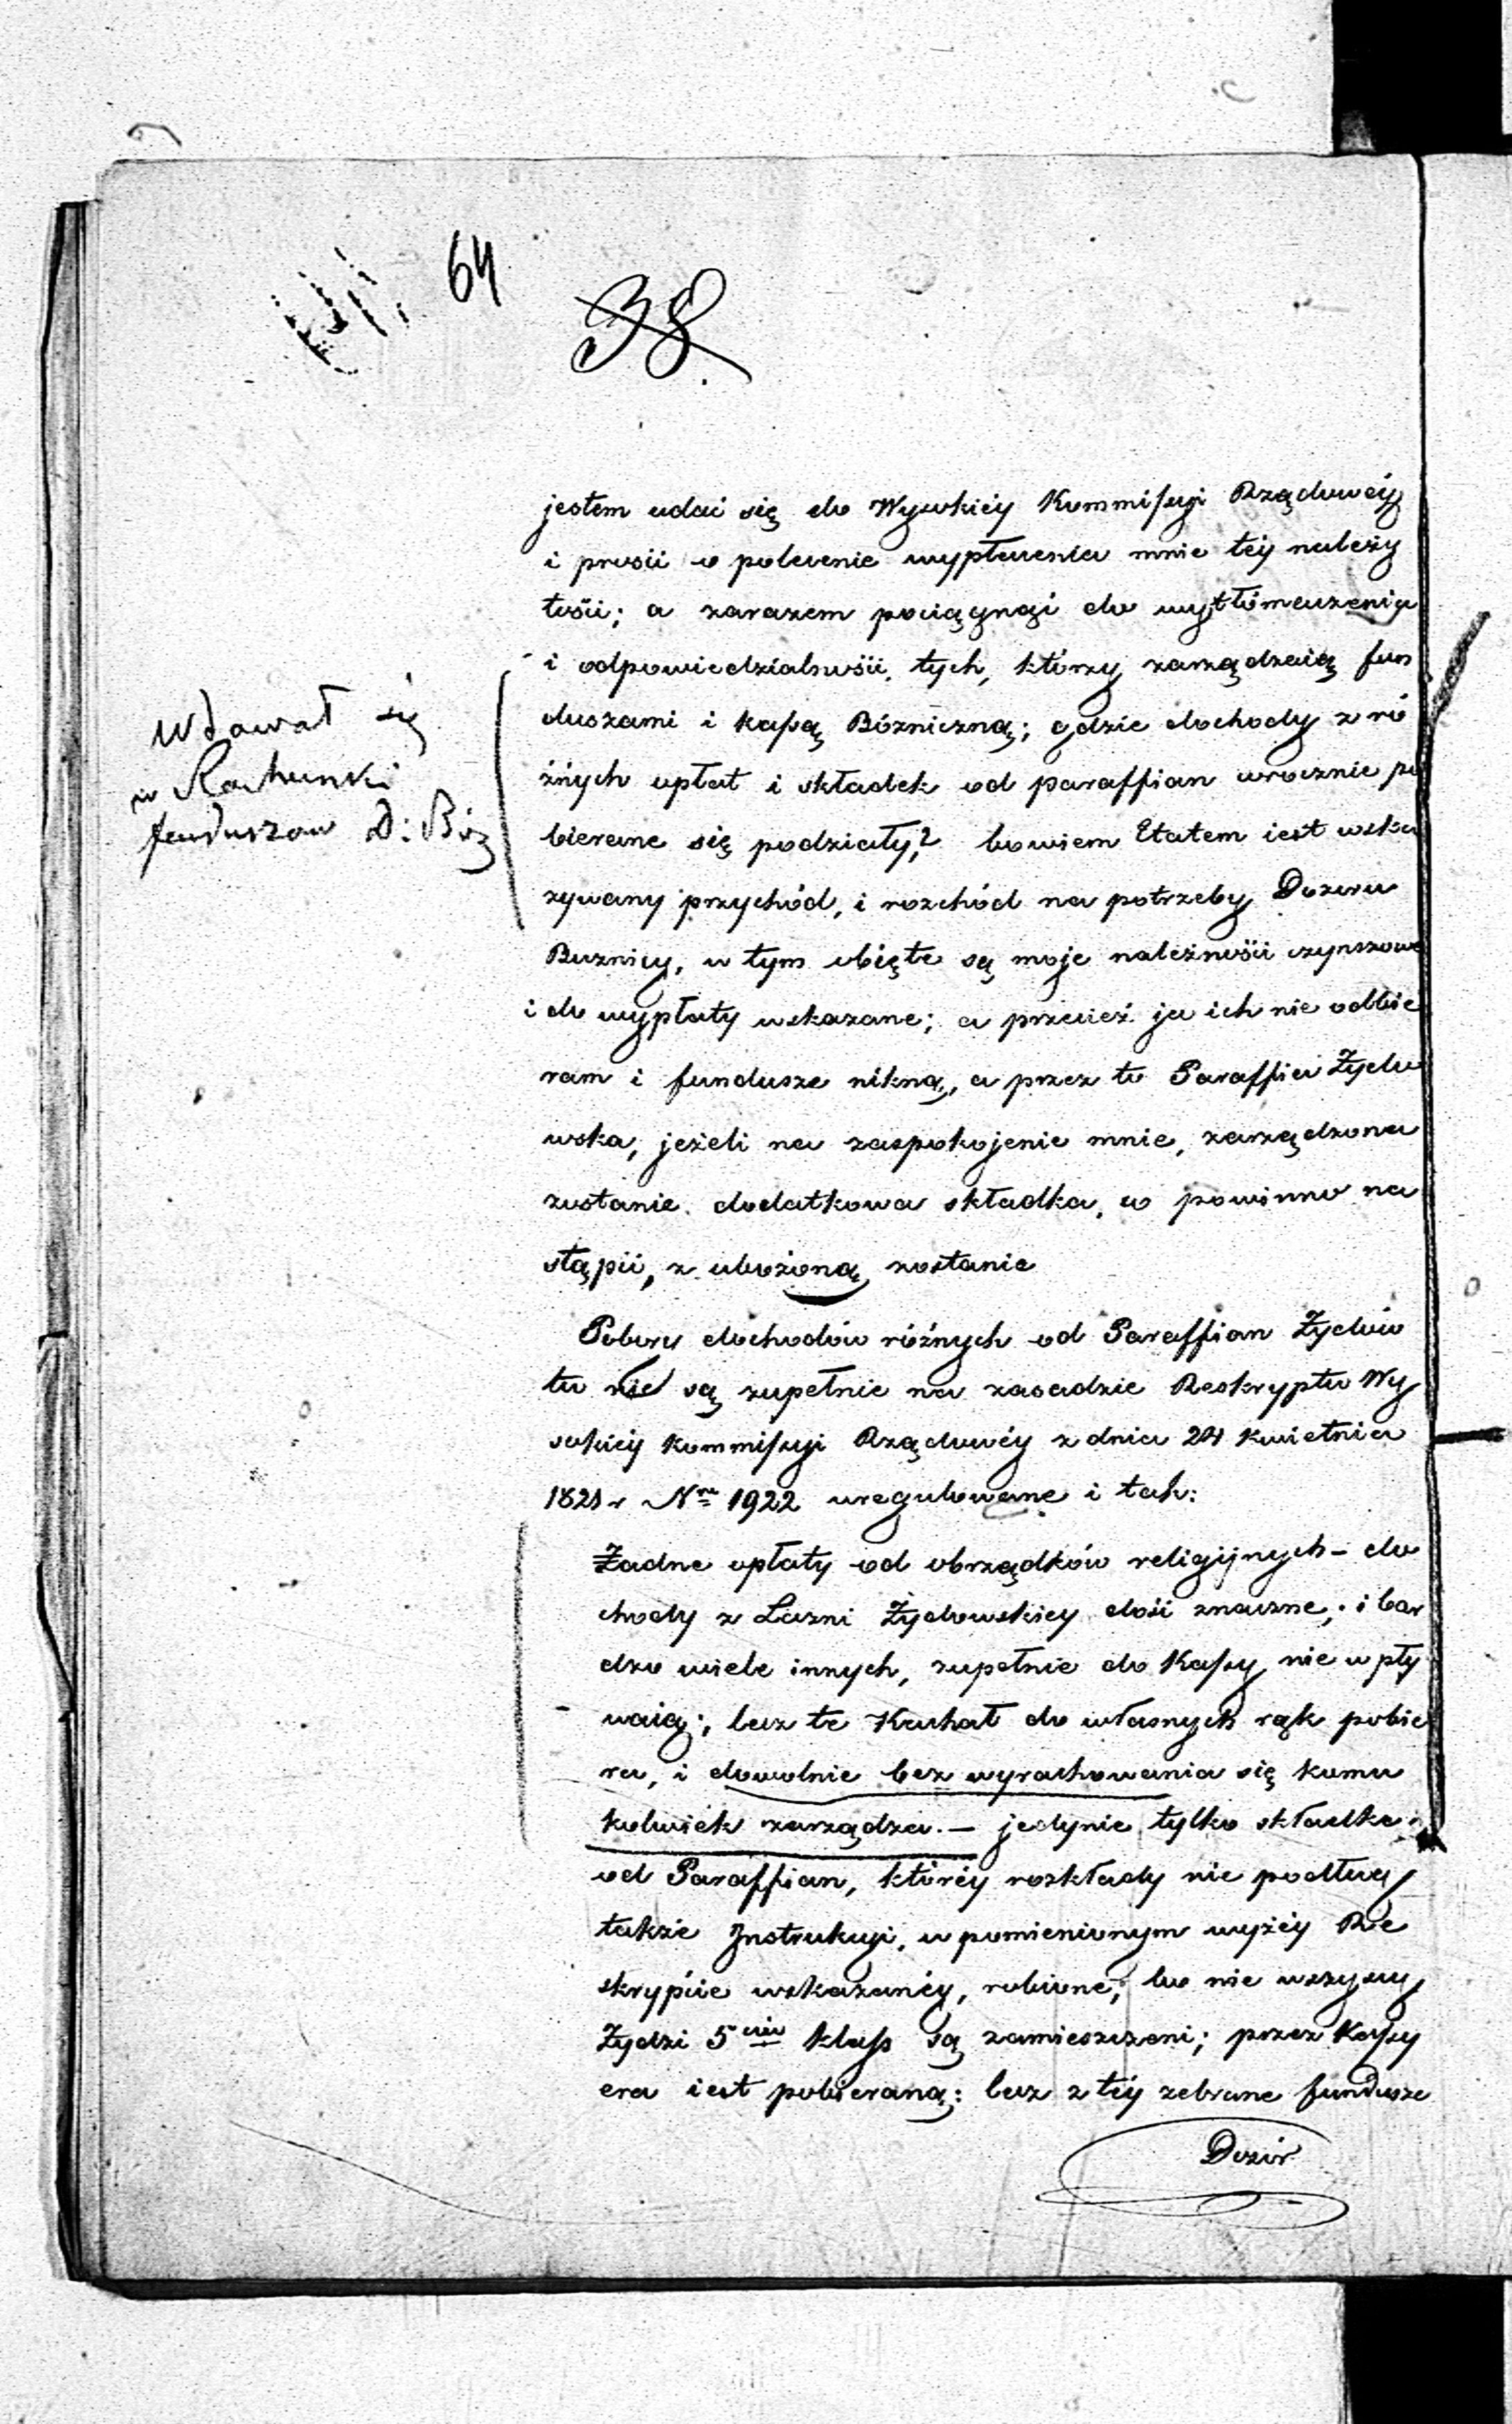 64
38
jestem udać się do Wysokiéy Kommissyi Rządowéy
i prosić o polecenie wypłacenia mnie téy należy
tości; a zarazem pociągnąć do wytłómaczenia
i odpowiedzialności, tych, którzy zarządzaią fun
duszami i kassą Bózniczną; gdzie dochody z ró
żnych opłat i składek od paraffian urocznie po
bierane się podziały? bowiem Etatem iest wska
zywany przychód, i rozchód na potrzeby Dozoru
Boznicy, w tym obięte są moje należności czynszowe
i do wypłaty wskazane; a przecież ja ich nie odbie
ram i fundusze nikną, a przez to Paraffia Żydo
wska, jeżeli na zaspokojenie mnie, zarządzona
zostanie dodatkowa składka, co powinno na
stąpić, z ubożoną zostanie
Wdawał się
w Rachunki
funduszow D: Bóz
Pobory dochodów różnych od Paraffian Żydów
tu nie są zupełnie na zasadzie Reskryptu Wy
sokiéy Kommissyi Rządowéy z dnia 24 Kwietnia
1821 r Nro 1922 uregulowane i tak:
Żadne opłaty od obrządków religijnych – do
chody z Łazni Żydowskiey dość znaczne; i bar
dzo wiele innych, zupełnie do Kassy nie wpły
waią; lecz te Kachał do własnych rąk pobie
ra, i dowolnie bez wyrachowania się komu
kolwiek zarządza. – jedynie tylko składka
od Paraffian, któréy rozkłady nie podług
także Instrukcyi, w pomienionym wyżéy Re
skrypcie wskazanéy, robione, bo nie wszyscy
Żydzi 5ciu klass są zamieszczeni; przez Kassy
era iest pobieraną: lecz z téy zebrane fundusze
Dozór